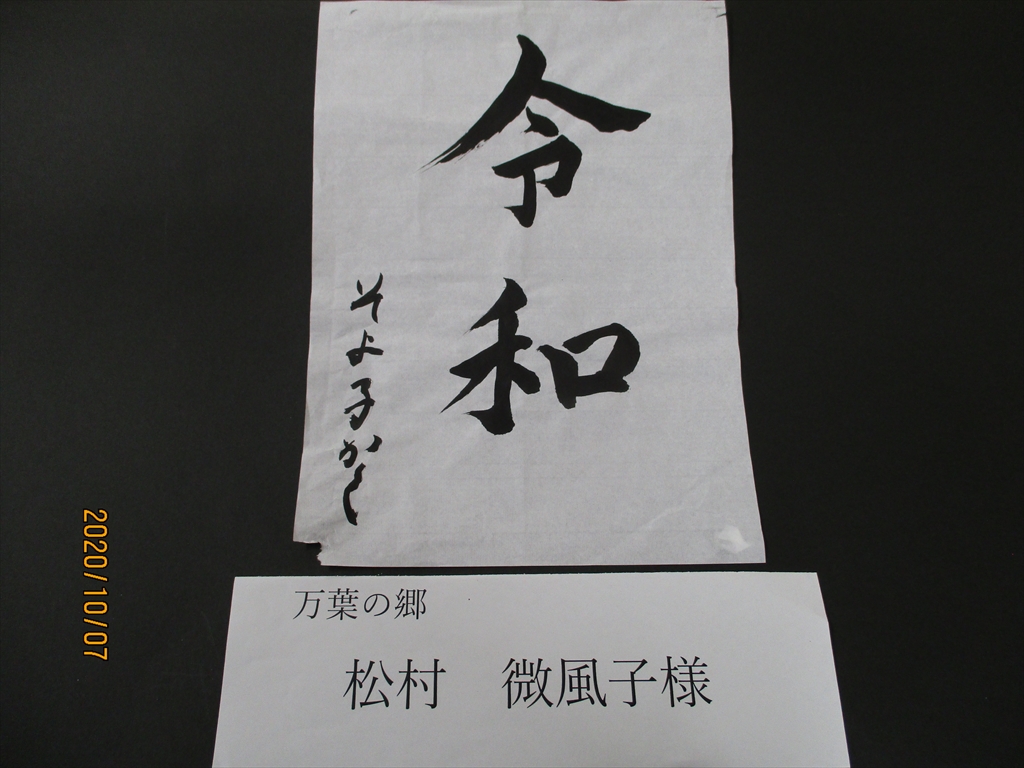 令和
そよ子かく
万葉の郷
松村　微風子様
2020/10/07